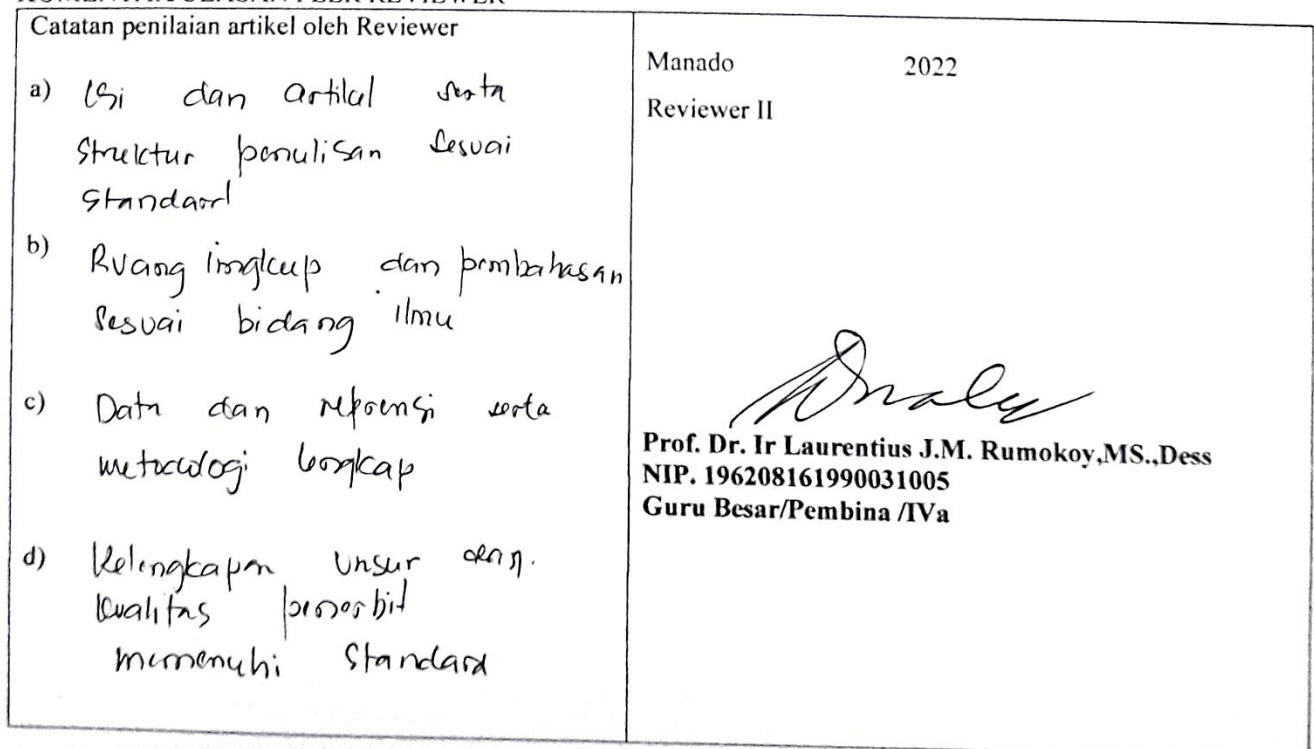 KOMENTAR/ULASAN PEER REVIEWER
Catatan penilaian artikel oleh Reviewer
a) Isi dan artikel serta
struktur penulisan sesuai
standard
b) Ruang lingkup dan pembahasan
sesuai bidang ilmu
c) Data dan referensi serta
metodologi lengkap
d) Kelengkapan unsur dan
kualitas penerbit
memenuhi standard
Manado 2022
Reviewer II
Prof. Dr. Ir Laurentius J.M. Rumokoy,MS.,Dess
NIP. 196208161990031005
Guru Besar/Pembina /IVa